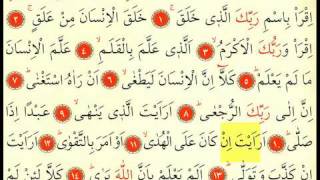 اِقْرَأْ بِاسْمِ رَبِّكَ الَّذ۪ي خَلَقَۚ ﴿١﴾ خَلَقَ الْاِنْسَانَ مِنْ عَلَقٍۚ ﴿٢﴾
اِقْرَأْ وَرَبُّكَ الْاَكْرَمُۙ ﴿٣﴾ اَلَّذ۪ي عَلَّمَ بِالْقَلَمِۙ ﴿٤﴾ عَلَّمَ الْاِنْسَانَ
مَا لَمْ يَعْلَمْۜ ﴿٥﴾ كَلَّٓا اِنَّ الْاِنْسَانَ لَيَطْغٰىۙ ﴿٦﴾ اَنْ رَاٰهُ اسْتَغْنٰىۜ ﴿٧﴾
اِنَّ اِلٰى رَبِّكَ الرُّجْعٰىۜ ﴿٨﴾ اَرَاَيْتَ الَّذ۪ي يَنْهٰىۙ ﴿٩﴾ عَبْدًا اِذَا
صَلّٰىۜ ﴿١٠﴾ اَرَاَيْتَ اِنْ كَانَ عَلَى الْهُدٰىۙ ﴿١١﴾ اَوْ اَمَرَ بِالتَّقْوٰىۜ ﴿١٢﴾ اَرَاَيْتَ
اِنْ كَذَّبَ وَتَوَلّٰىۜ ﴿١٣﴾ اَلَمْ يَعْلَمْ بِاَنَّ اللّٰهَ يَرٰىۜ ﴿١٤﴾ كَلَّا لَئِنْ لَمْ